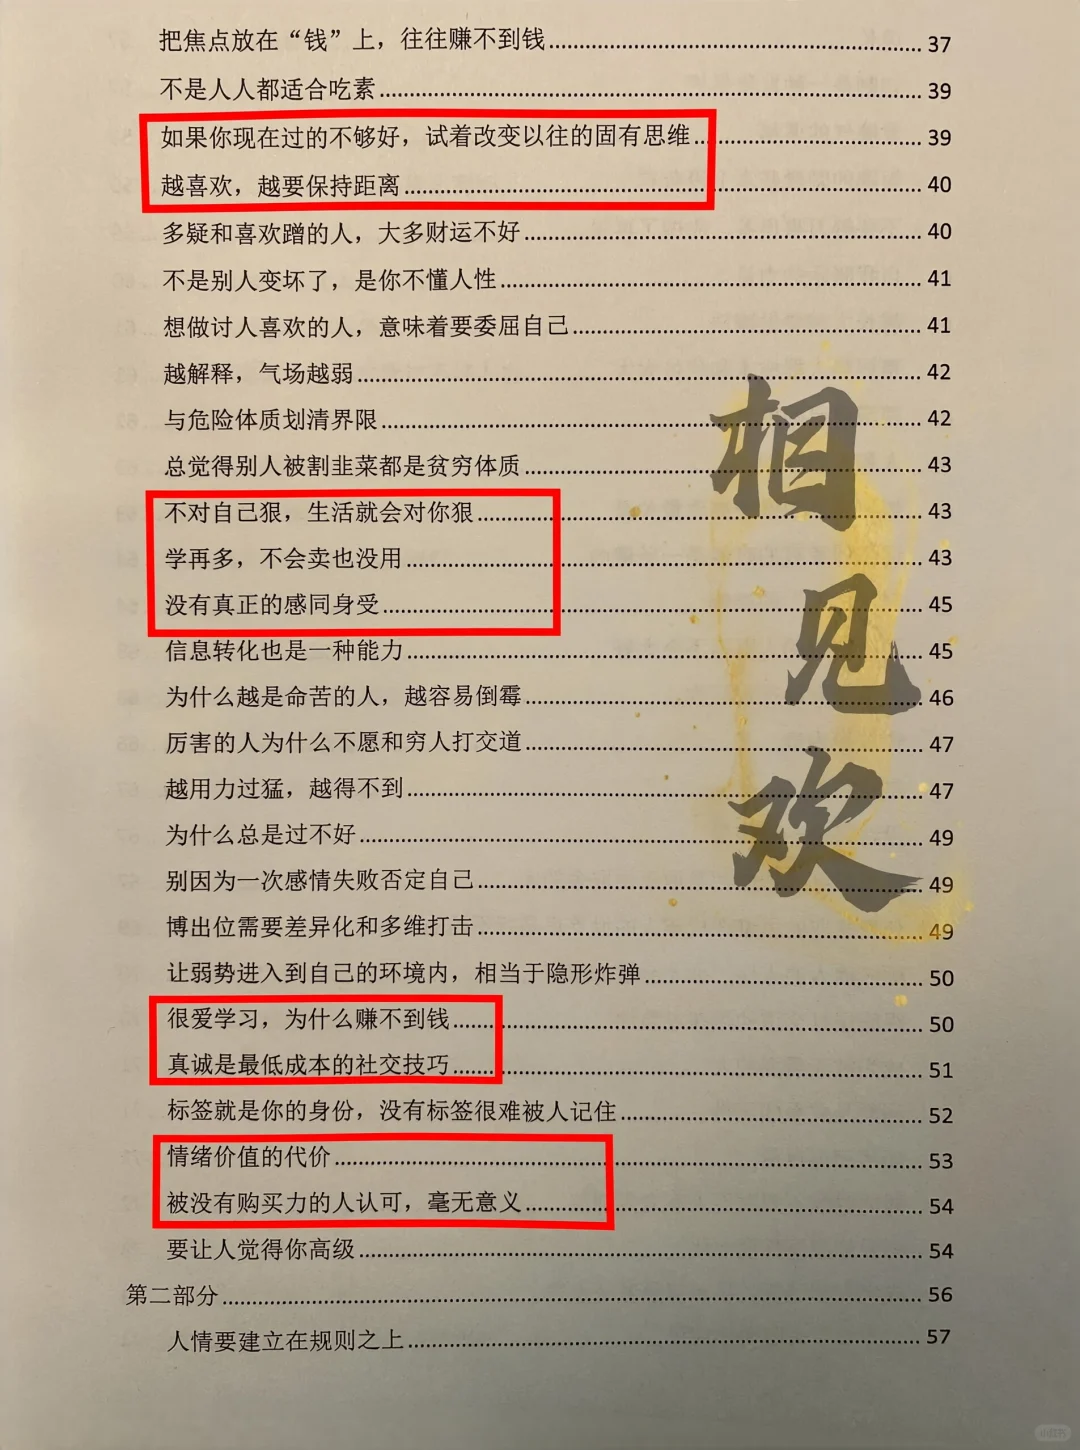 把焦点放在“钱”上，往往赚不到钱........37
不是人人都适合吃素........39
如果你现在过的不够好，试着改变以往的固有思维........39
越喜欢，越要保持距离........40
多疑和喜欢蹭的人，大多财运不好........40
不是别人变坏了，是你不懂人性........41
想做讨人喜欢的人，意味着要委屈自己........41
越解释，气场越弱........42
与危险体质划清界限........42
总觉得别人被割韭菜都是贫穷体质........43
不对自己狠，生活就会对你狠........43
学再多，不会卖也没用........43
没有真正的感同身受........45
信息转化也是一种能力........45
为什么越是命苦的人，越容易倒霉........46
厉害的人为什么不愿和穷人打交道........47
越用力过猛，越得不到........47
为什么总是过不好........49
别因为一次感情失败否定自己........49
博出位需要差异化和多维打击........49
让弱势进入到自己的环境内，相当于隐形炸弹........50
很爱学习，为什么赚不到钱........50
真诚是最低成本的社交技巧........51
标签就是你的身份，没有标签很难被人记住........52
情绪价值的代价........53
被没有购买力的人认可，毫无意义........54
要让人觉得你高级........54
第二部分........56
人情要建立在规则之上........57
相见欢
小红书